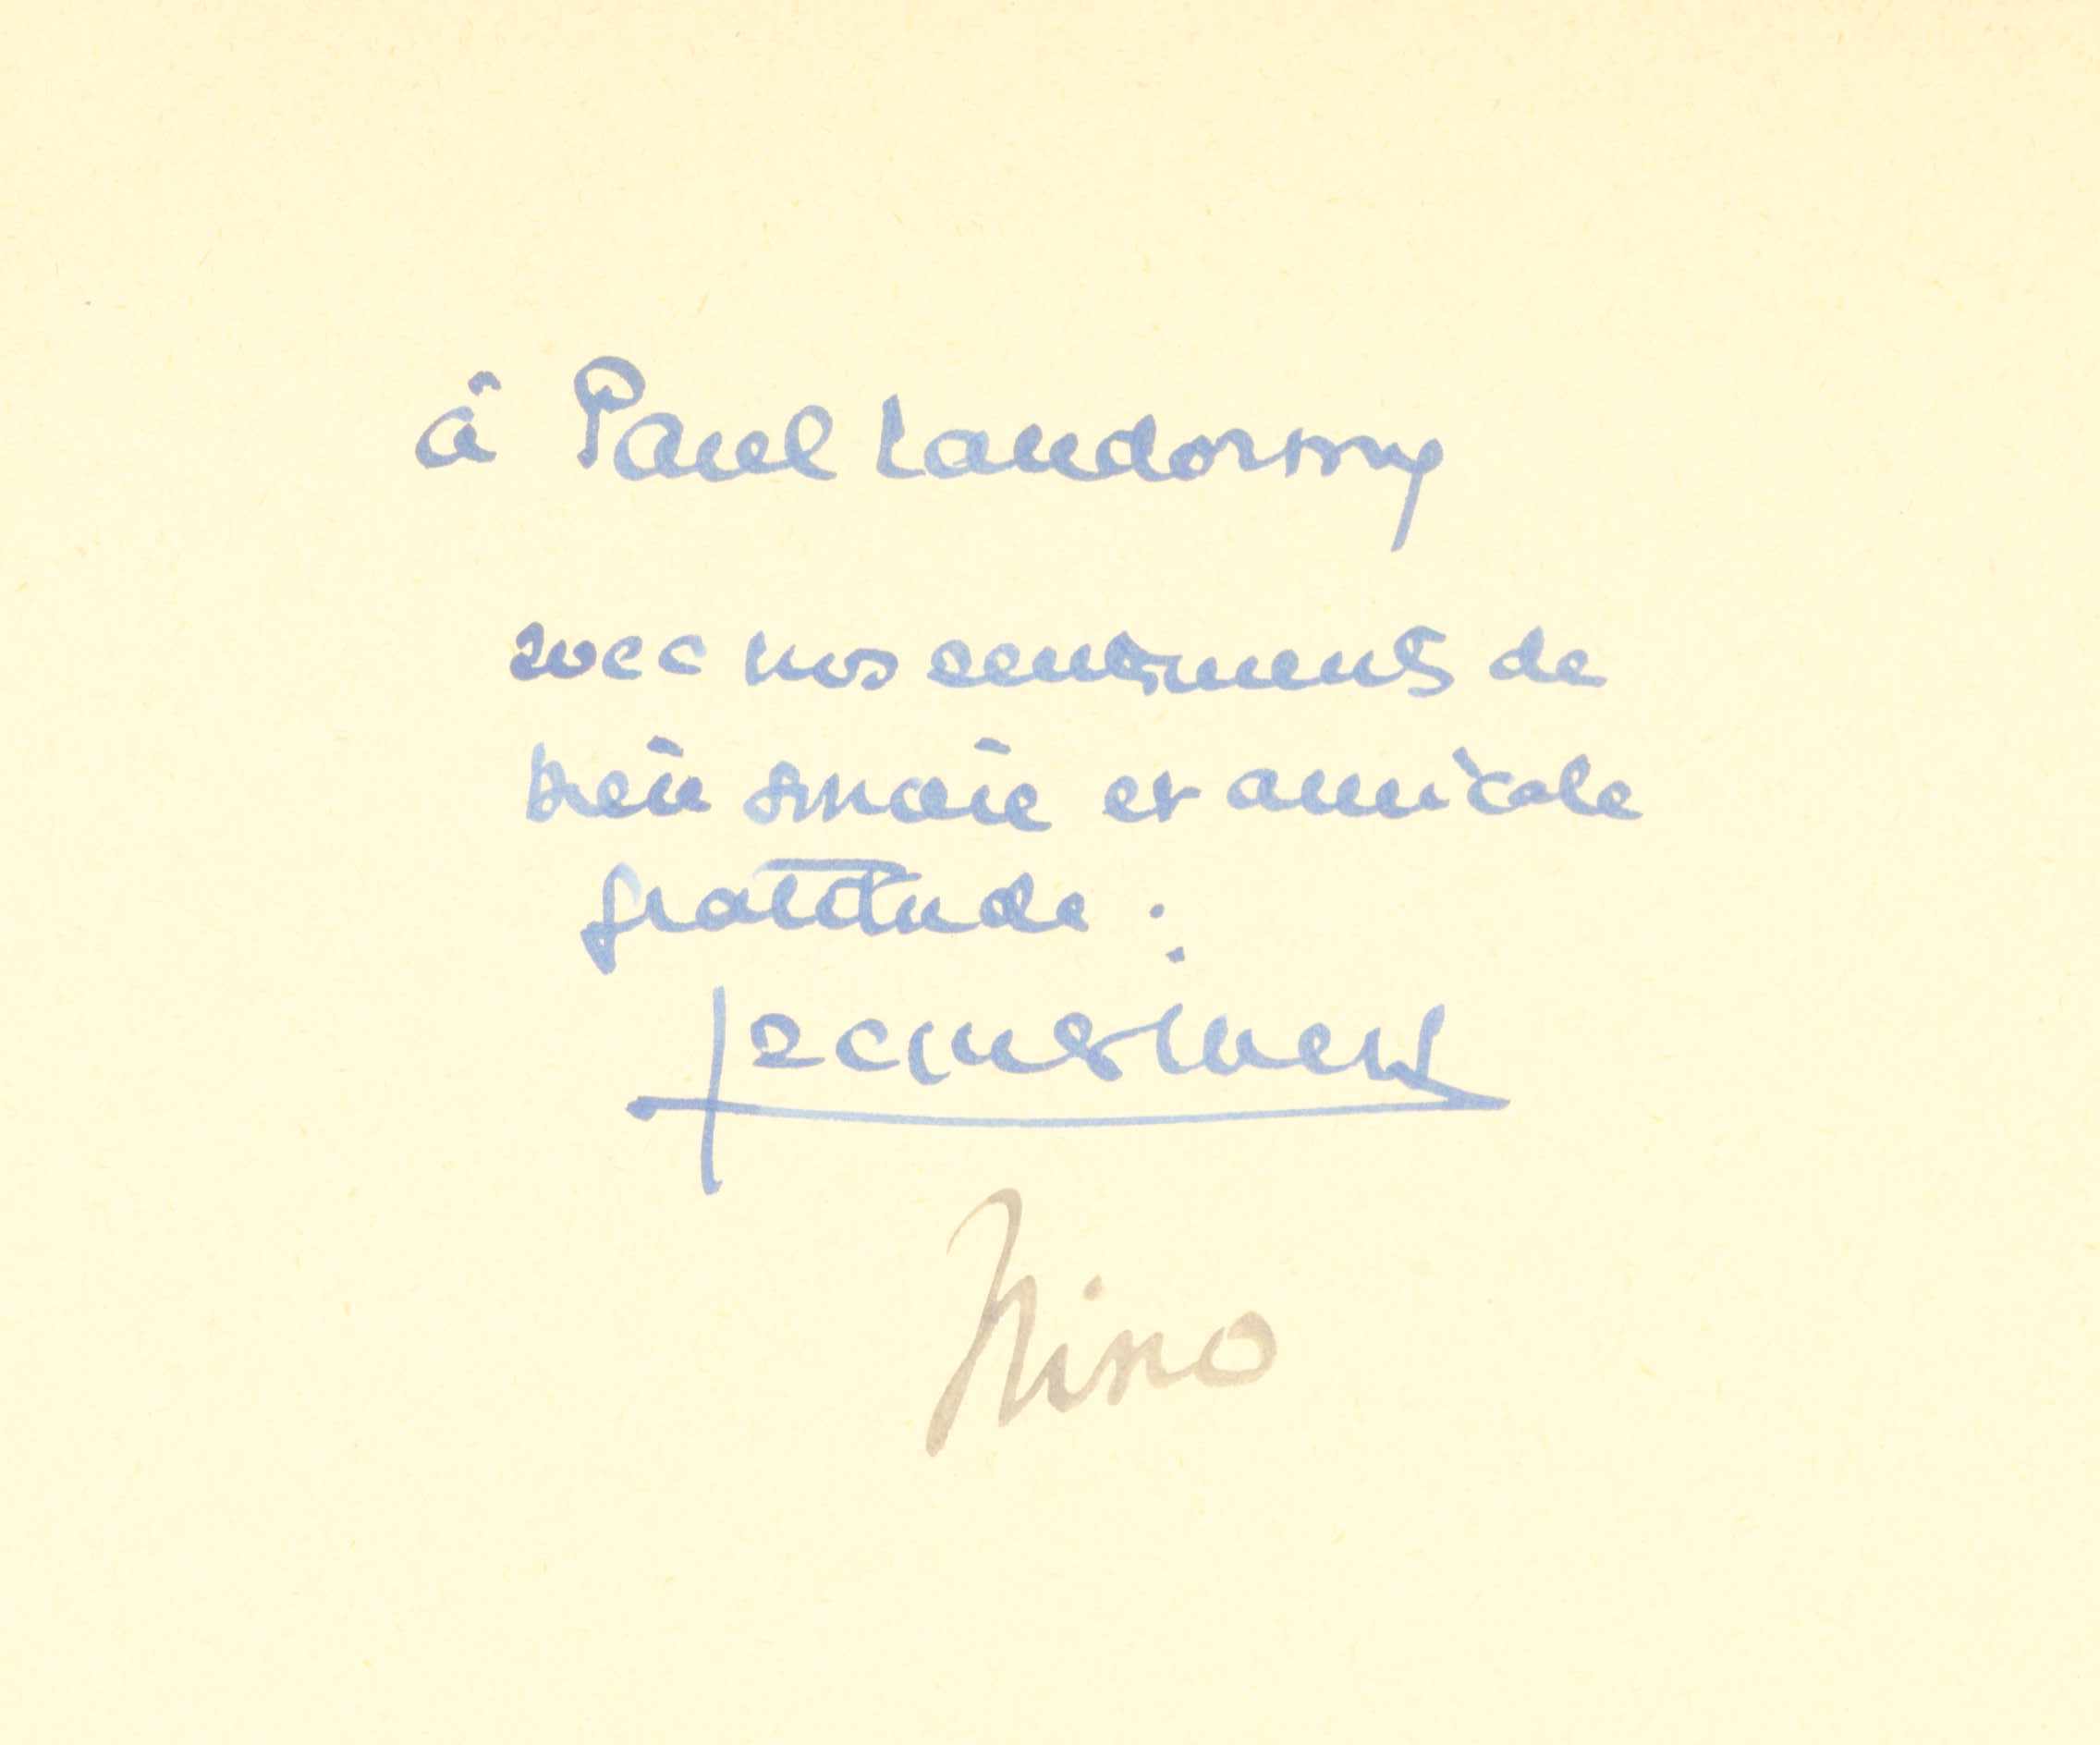 à Paul Landormy
avec nos sentiments de
bien sincère et amicale
gratitude :
Jacques Ibert
Nino